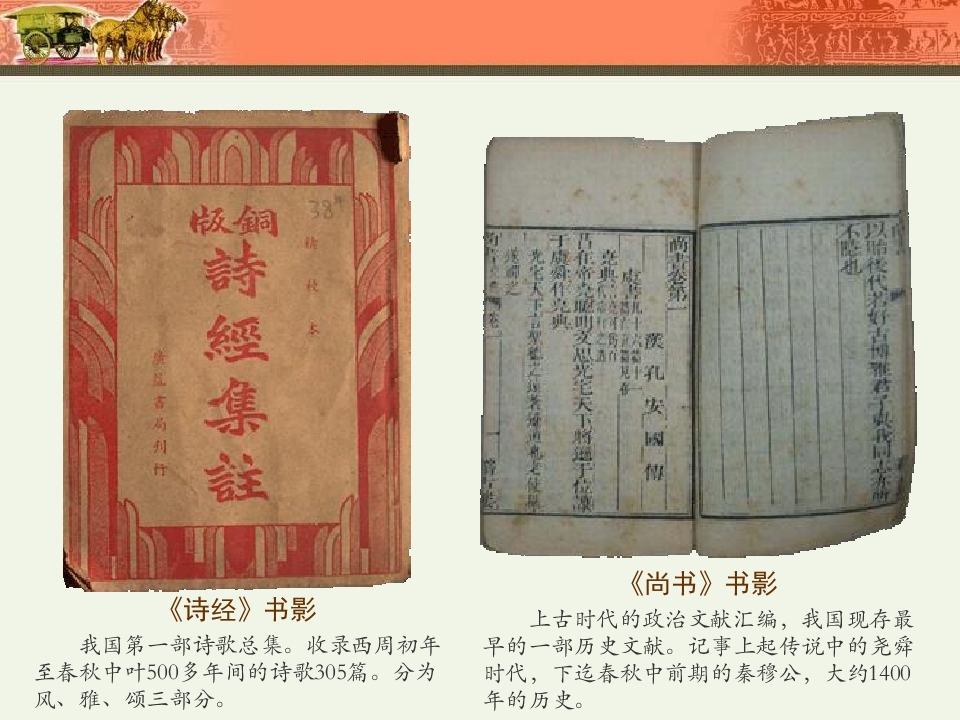 銅版
詩經集註
38
廣益書局刊行
《诗经》书影
我国第一部诗歌总集。收录西周初年
至春秋中叶500多年间的诗歌305篇。分为
风、雅、颂三部分。
以貽後代若好古博雅君子與我同志亦所
不隱也
尚書卷第一
漢孔安國傳
昔在帝堯聰明文思光宅天下將遜于位讓
于虞舜作堯典
《尚书》书影
上古时代的政治文献汇编，我国现存最
早的一部历史文献。记事上起传说中的尧舜
时代，下迄春秋中前期的秦穆公，大约1400
年的历史。